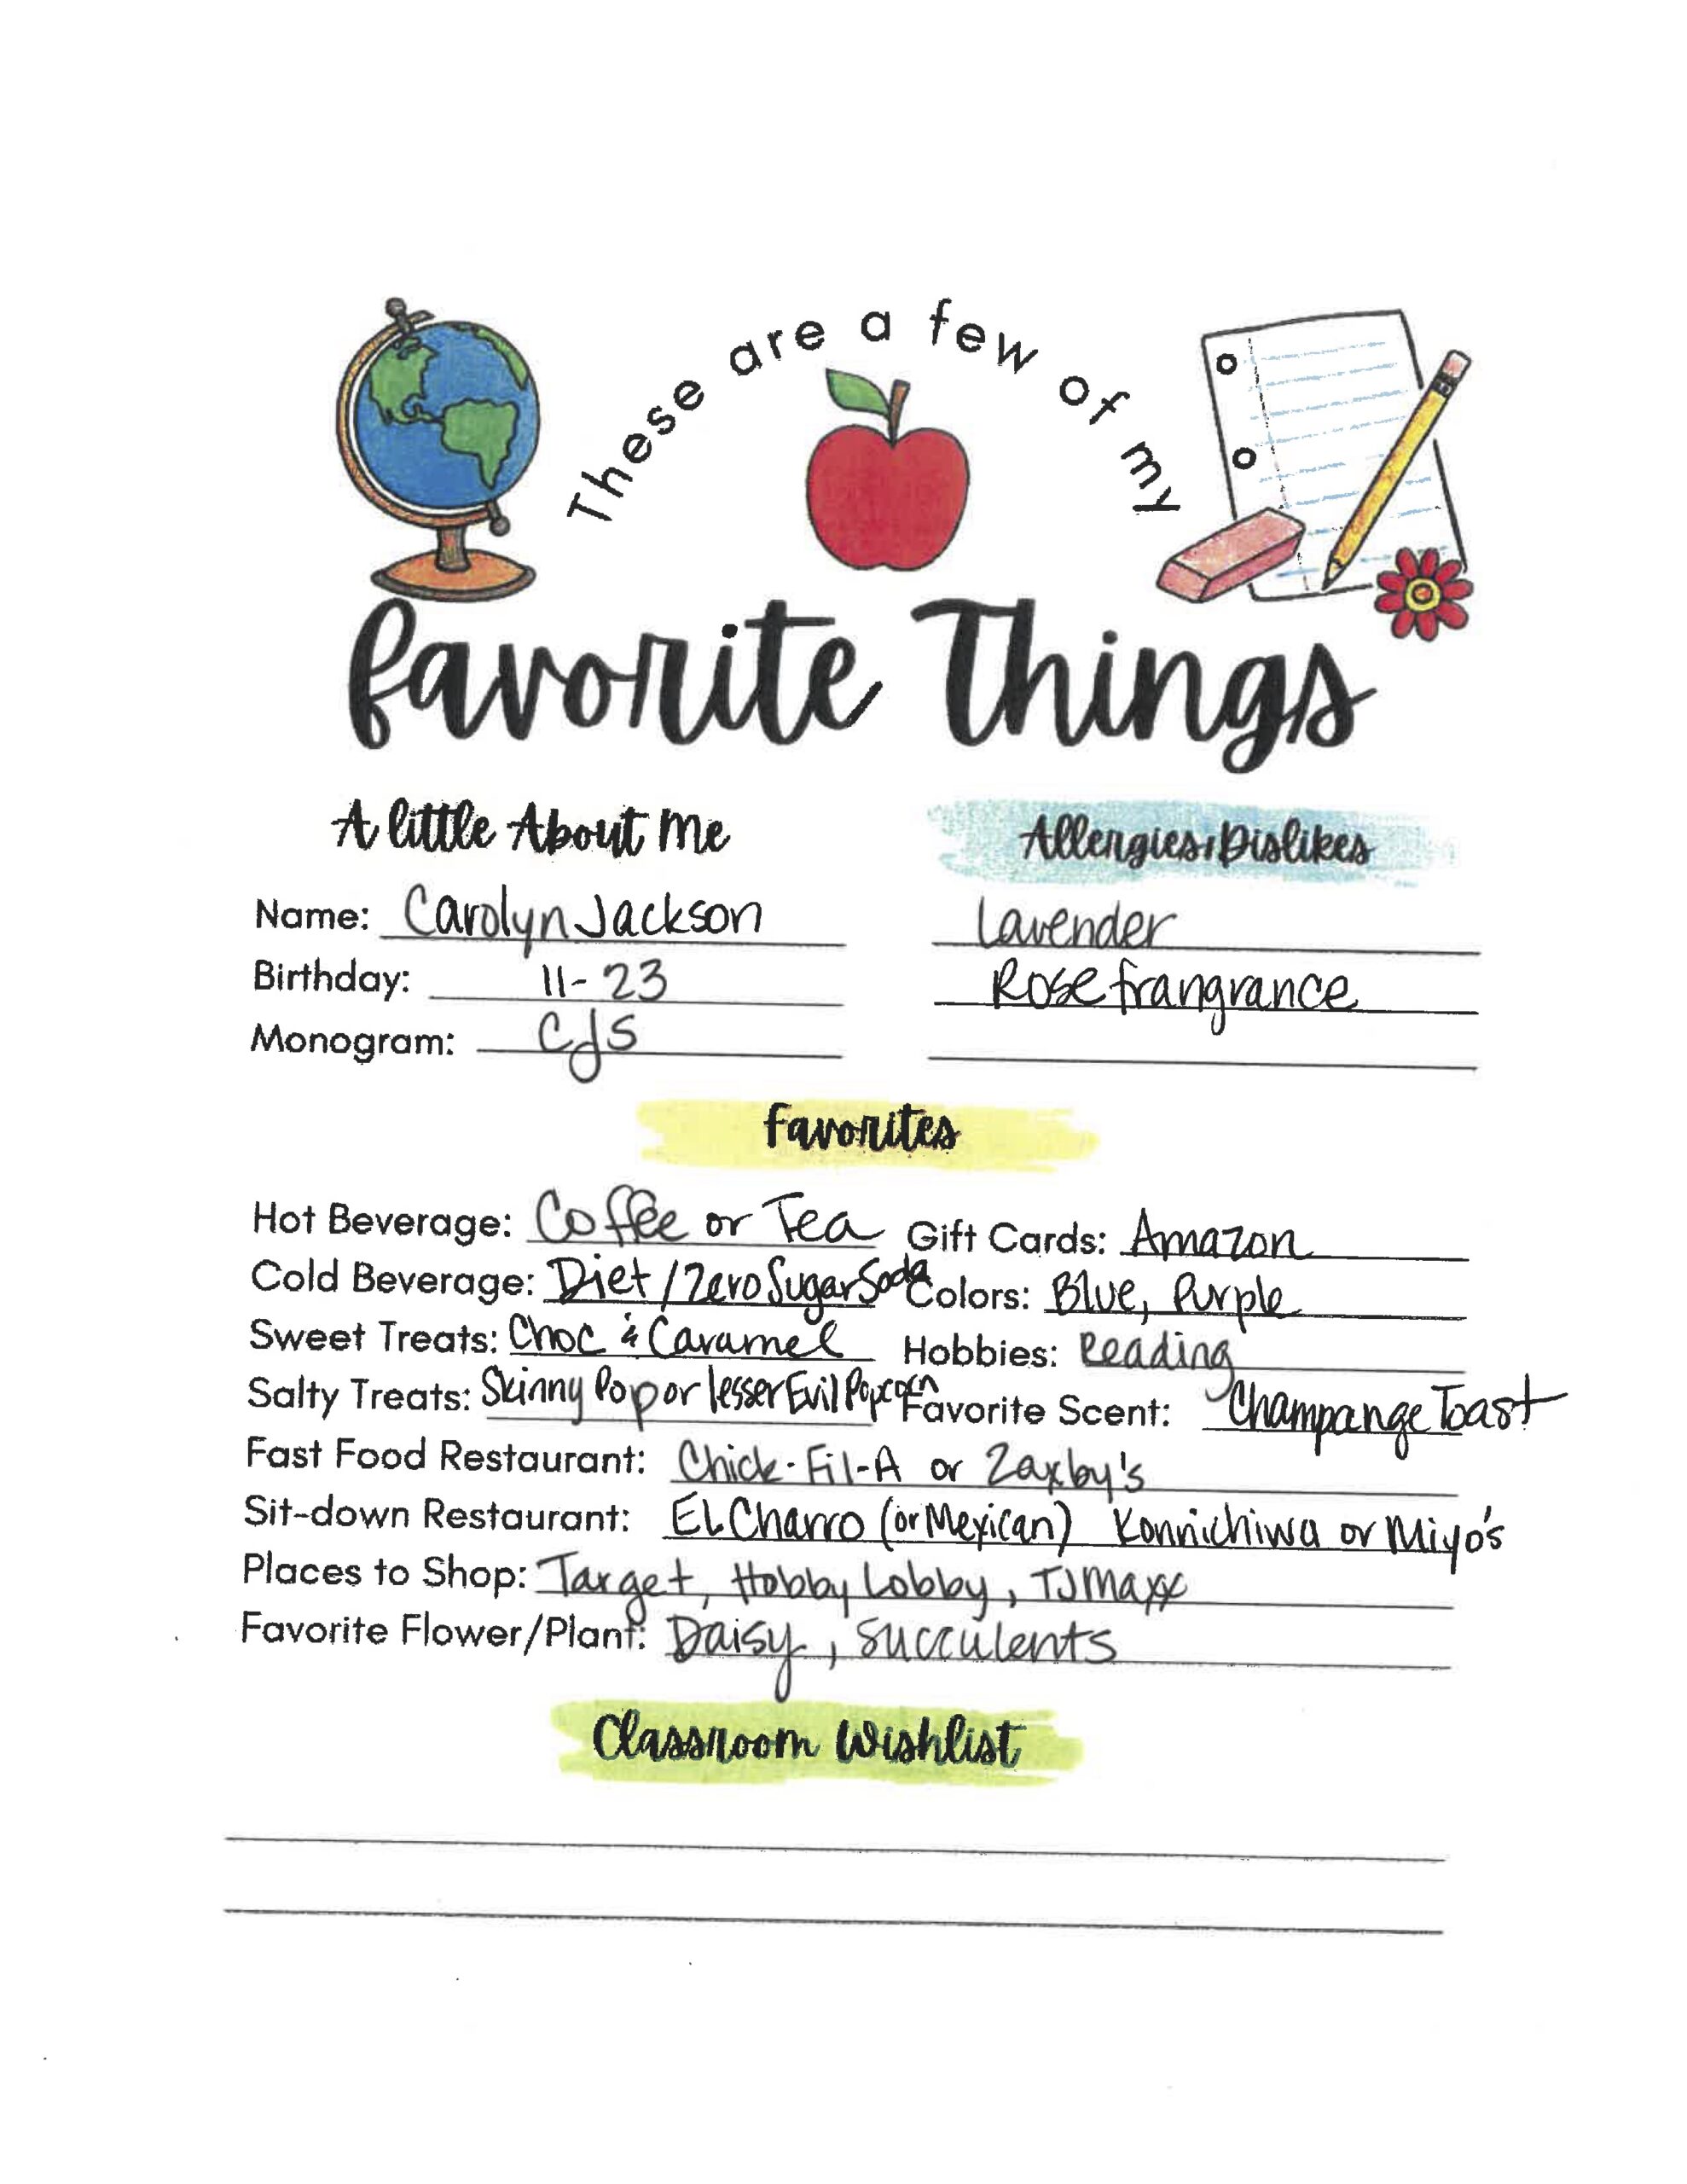 These are a few of my
favorite Things
A little About Me
Name: Carolyn Jackson
Birthday: 11-23
Monogram: CJS
Allergies/Dislikes
Lavender
Rose frangrance
favorites
Hot Beverage: Coffee or Tea
Cold Beverage: Diet/Zero Sugar Soda
Sweet Treats: Choc & Caramel
Salty Treats: Skinny Pop or lesser Evil Popcorn
Gift Cards: Amazon
Colors: Blue, Purple
Hobbies: Reading
Favorite Scent: Champange Toast
Fast Food Restaurant: Chick-Fil-A or Zaxby's
Sit-down Restaurant: EL Charro (or Mexican) Konnichiwa or Miyo's
Places to Shop: Target, Hobby Lobby, TJ Maxx
Favorite Flower/Plant: Daisy, Succulents
Classroom Wishlist